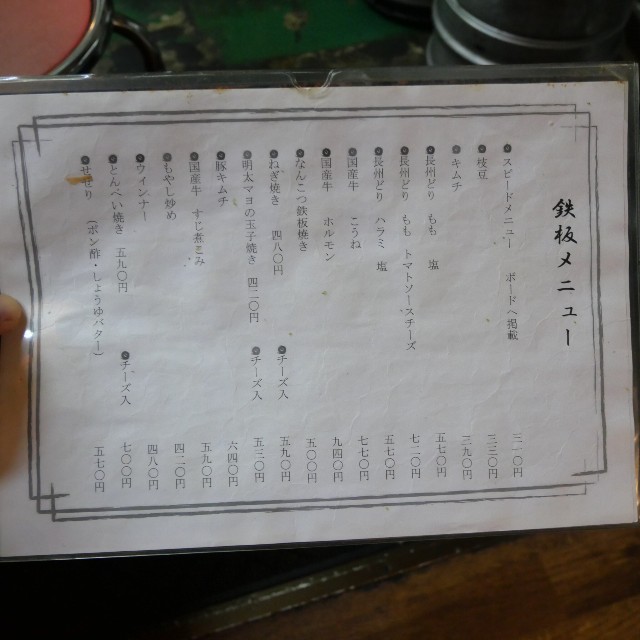 鉄板メニュー
スピードメニュー ボードへ掲載 三一〇円
枝豆 三三〇円
キムチ 三九〇円
長州どり もも 塩 五七〇円
長州どり もも トマトソースチーズ 七二〇円
長州どり ハラミ 塩 五七〇円
国産牛 こうね 七七〇円
国産牛 ホルモン 九四〇円
なんこつ鉄板焼き 五〇〇円
ねぎ焼き 四八〇円 チーズ入 五九〇円
明太マヨの玉子焼き 四二〇円 チーズ入 五三〇円
豚キムチ 六四〇円
国産牛 すじ煮こみ 五九〇円
もやし炒め 四二〇円
ウィンナー 四八〇円
とんぺい焼き 五九〇円 チーズ入 七〇〇円
（ポン酢・しょうゆバター） 五七〇円